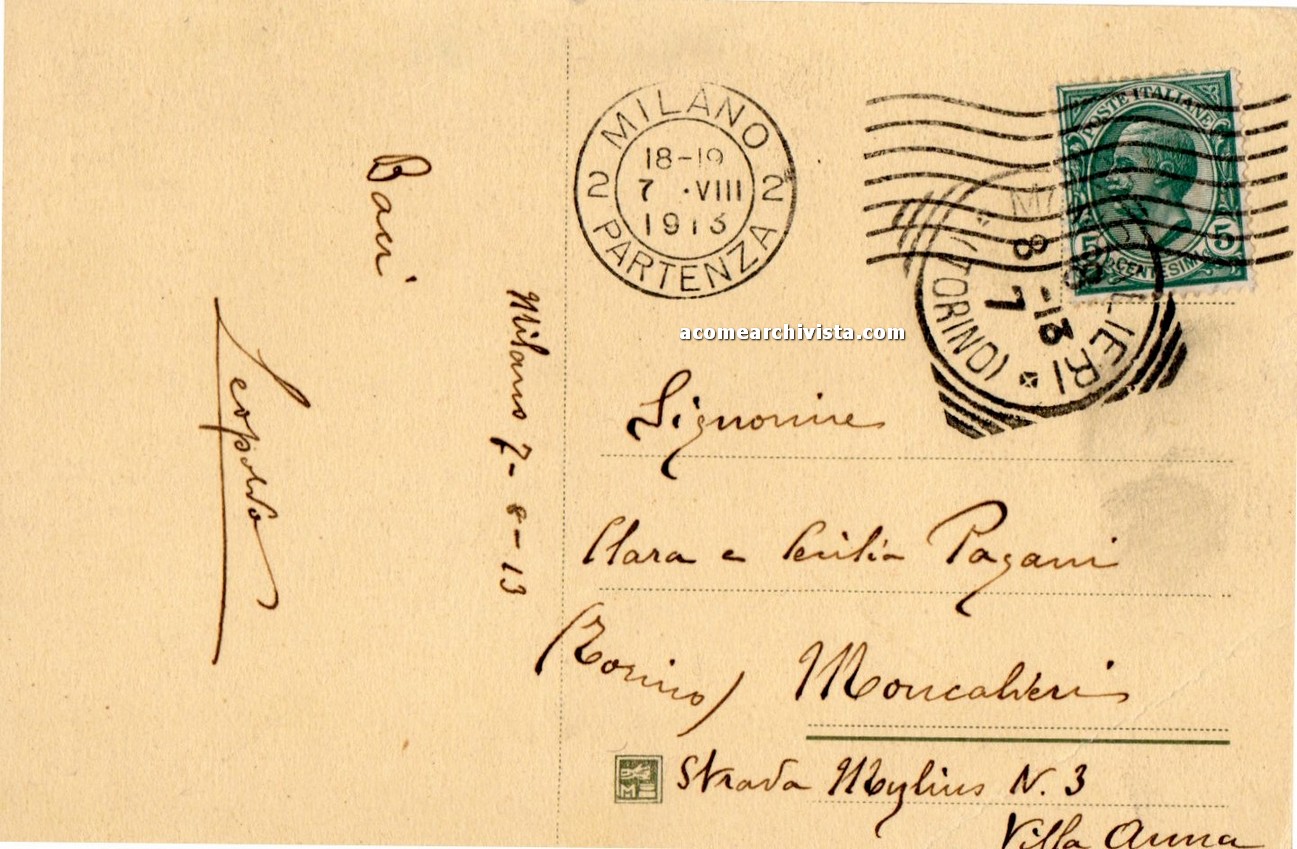 Baci
Leopoldo
Milano 7-8-13
MILANO
2 18-19 2
7 · VIII
1913
PARTENZA
POSTE ITALIANE
5 CENTESIMI 5
MONCALIERI
(TORINO)
8 7 -13
acomearchivista.com
Signorine
Clara e Cecilia Pagani
(Torino) Moncalieri
M
Strada Mylius N. 3
Villa Anna